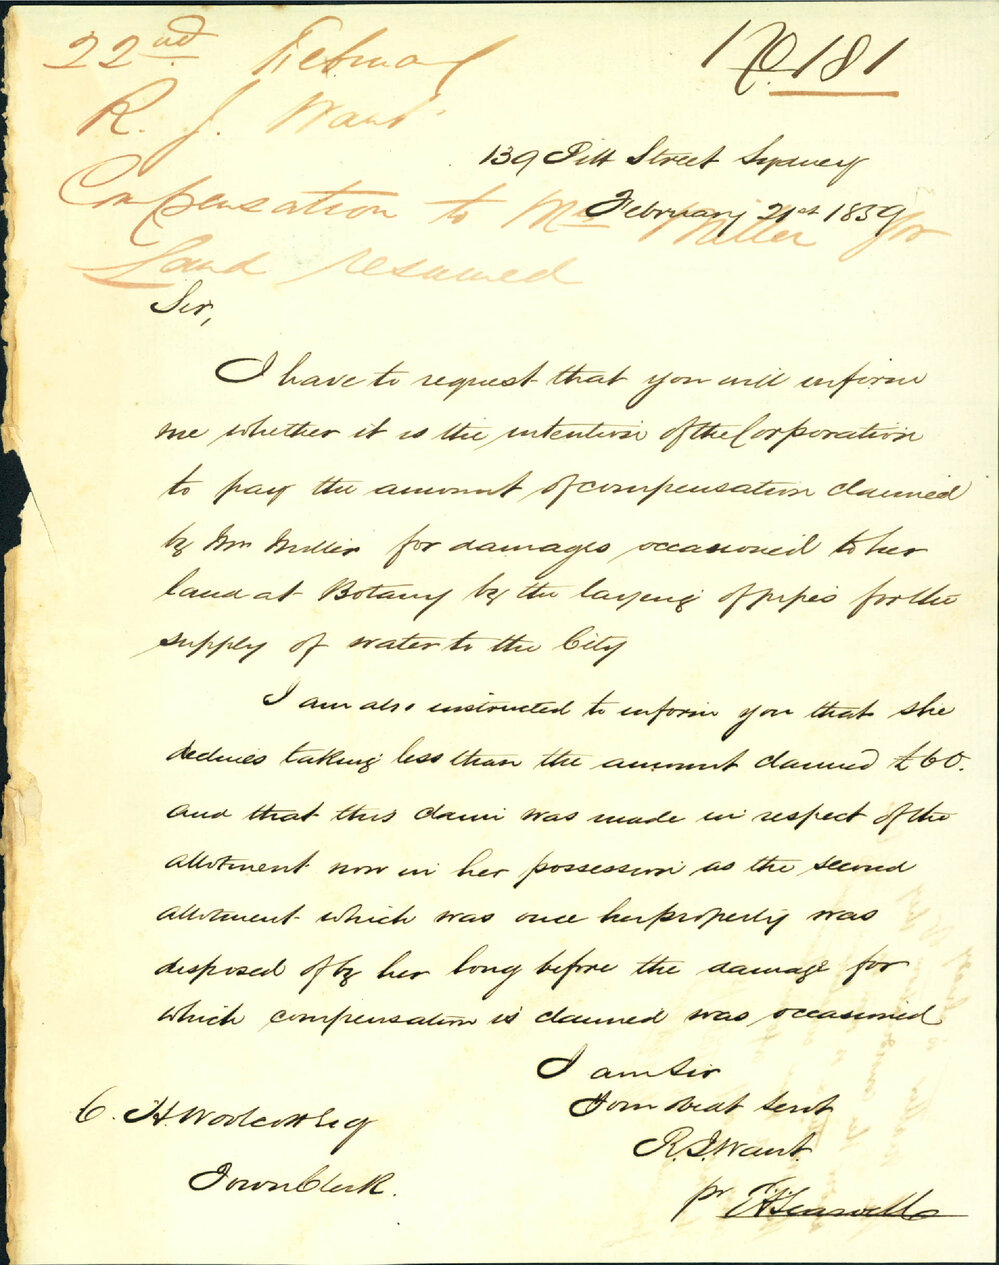 22nd February
No. 181
R. J. Want
139 Pitt Street Sydney
Compensation to Mrs Miller for
February 21st 1859
Land resumed
Sir,
I have to request that you will inform
me whether it is the intention of the Corporation
to pay the amount of compensation claimed
by Mrs Miller for damages occasioned to her
land at Botany by the laying of pipes for the
supply of water to the City
I am also instructed to inform you that she
declines taking less than the amount claimed £60.
and that this claim was made in respect of the
allotment now in her possession as the second
allotment which was once her property was
disposed of by her long before the damage for
which compensation is claimed was occasioned
I am Sir
Your obedt Servt
C. H. Woolcott Esq
R. J. Want
Town Clerk.
pr